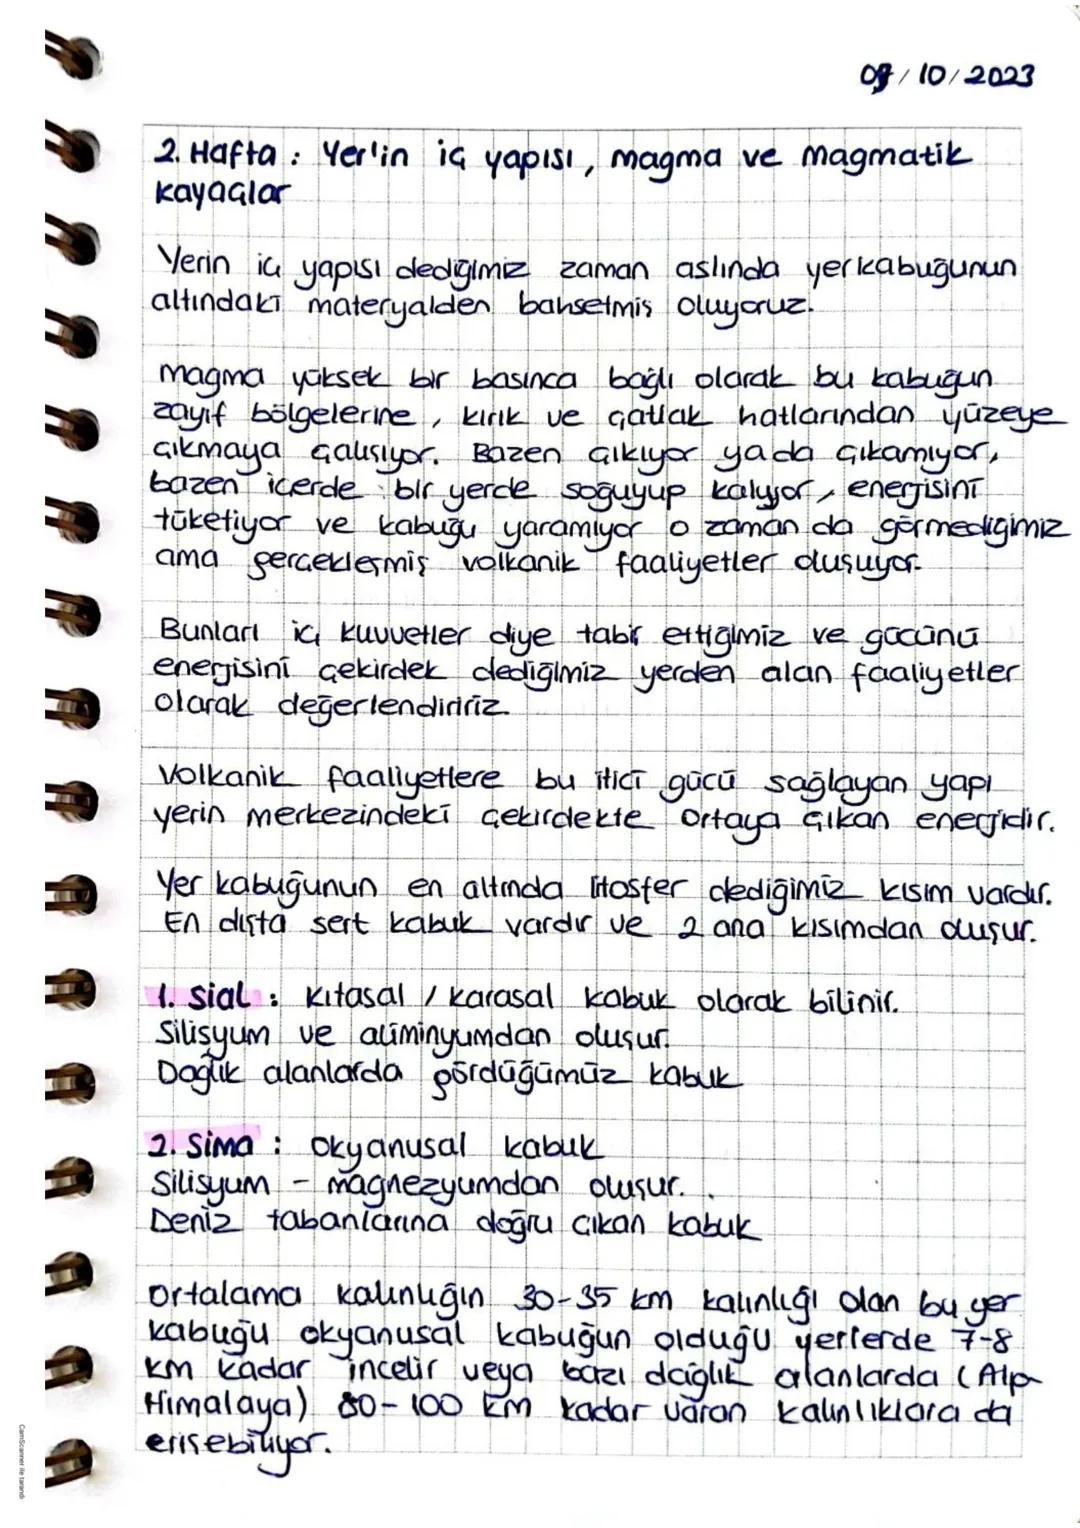 09/10/2023
2. Hafta : Yer'in iç yapısı, magma ve magmatik
kayaçlar
Yerin iç yapısı dediğimiz zaman aslında yerkabuğunun
altındaki materyalden bahsetmiş oluyoruz.
Magma yüksek bir basınca bağlı olarak bu kabuğun
zayıf bölgelerine, kırık ve çatlak hatlarından yüzeye
çıkmaya çalışıyor. Bazen çıkıyor yada çıkamıyor,
bazen içerde bir yerde soğuyup kalıyor, enerjisini
tüketiyor ve kabuğu yaramıyor o zaman da görmediğimiz
ama gerçekleşmiş volkanik faaliyetler oluşuyor.
Bunları iç kuvvetler diye tabir ettiğimiz ve gücünü
enerjisini çekirdek dediğimiz yerden alan faaliyetler
olarak değerlendiririz.
Volkanik faaliyetlere bu itici gücü sağlayan yapı
yerin merkezindeki çekirdekte ortaya çıkan enerjidir.
Yer kabuğunun en altında litosfer dediğimiz kısım vardır.
En dışta sert kabuk vardır ve 2 ana kısımdan oluşur.
1. Sial : Kıtasal / karasal kabuk olarak bilinir.
Silisyum ve alüminyumdan oluşur.
Dağlık alanlarda gördüğümüz kabuk
2. Sima : Okyanusal kabuk
Silisyum - magnezyumdan oluşur.
Deniz tabanlarına doğru çıkan kabuk
Ortalama kalınlığın 30-35 km kalınlığı olan bu yer
kabuğu okyanusal kabuğun olduğu yerlerde 7-8
km kadar incelir veya bazı dağlık alanlarda (Alp-
Himalaya) 80-100 km kadar varan kalınlıklara da
erişebiliyor.
CamScanner ile tarandı